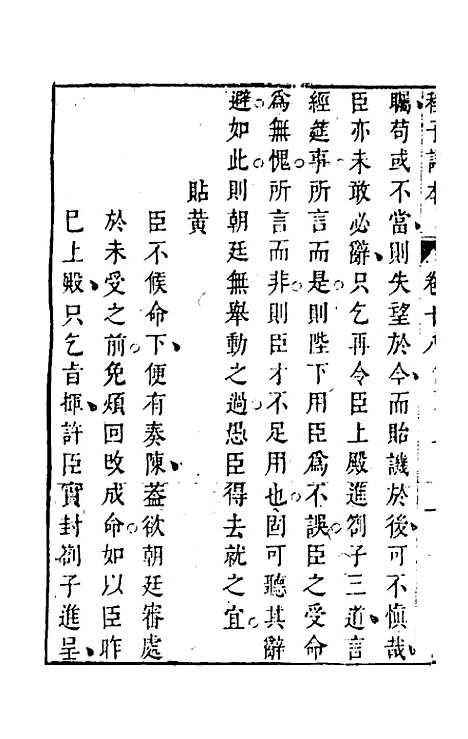 程子詳本 卷十八
矚苟或不當則失望於今而貽譏於後可不愼哉
臣亦未敢必辭只乞再令臣上殿進劄子三道言
經筵事所言而是則陛下用臣爲不誤臣之受命
爲無愧所言而非則臣才不足用也固可聽其辭
避如此則朝廷無舉動之過愚臣得去就之宜
貼黄
臣不候命下便有奏陳蓋欲朝廷審處
於未受之前免煩回改成命如以臣昨
已上殿只乞旨揮許臣實封劄子進呈